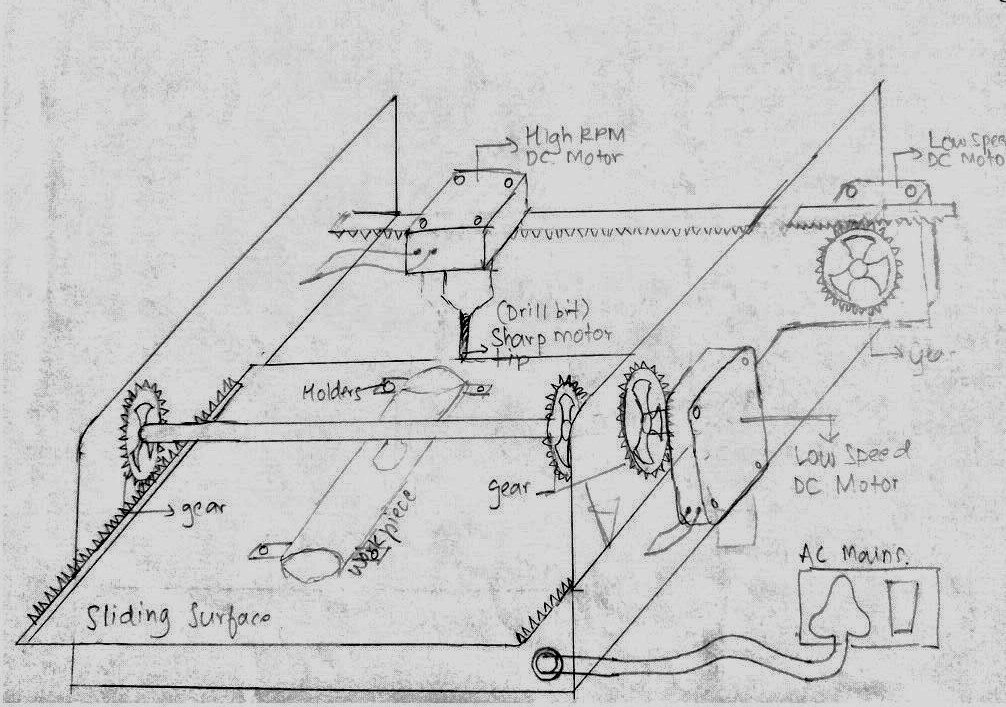 High RPM
DC Motor
Low Spee
DC Moto
(Drill bit)
Sharp motor
tip
Holders
gear
gear
Low Speed
DC Motor
workpiece
AC Mains.
Sliding Surface